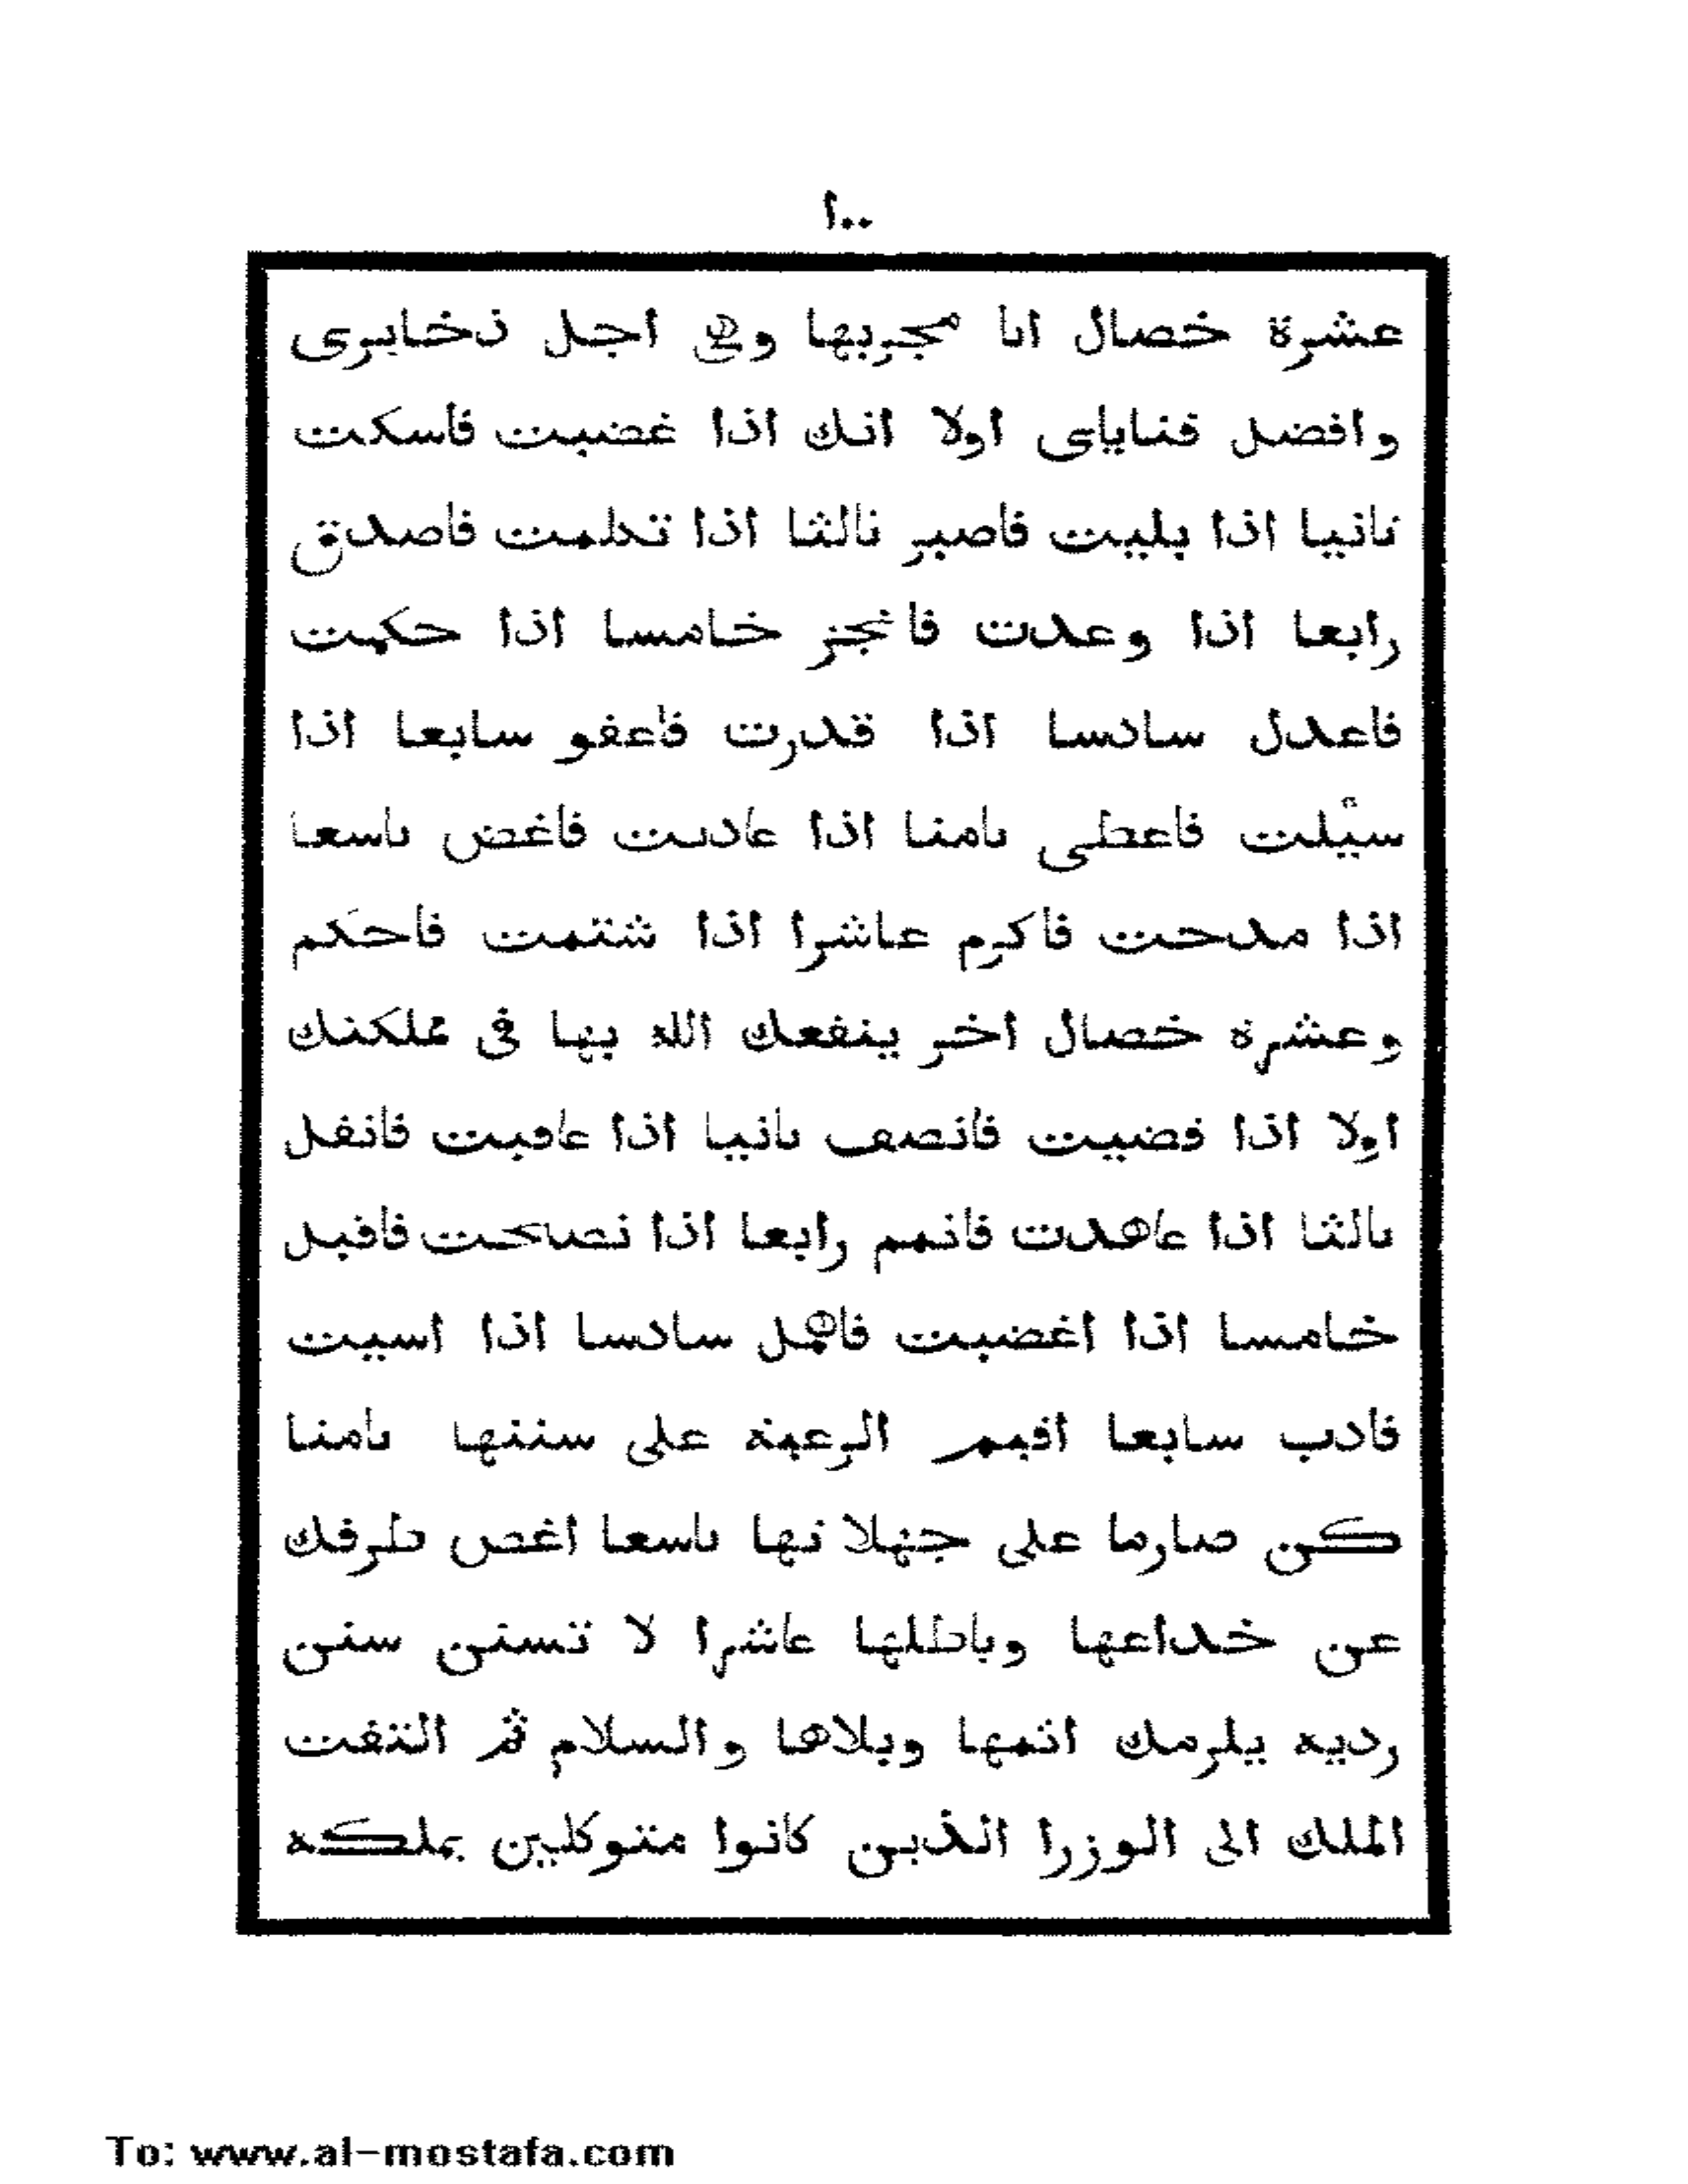 ١٠٠
عشرة خصال انا مجربها وهي اجل ذخايرى
وافضل قناياى اولا انك اذا غضبت فاسكت
ثانيا اذا بليت فاصبر ثالثا اذا تكلمت فاصدق
رابعا اذا وعدت فانجز خامسا اذا حكمت
فاعدل سادسا اذا قدرت فاعفو سابعا اذا
سئلت فاعطى ثامنا اذا عاديت فاغض تاسعا
اذا مدحت فاكرم عاشرا اذا شتمت فاحكم
وعشرة خصال اخر ينفعك الله بها فى مملكتك
اولا اذا قضيت فانصف ثانيا اذا عاقبت فانقل
ثالثا اذا عاهدت فاتمم رابعا اذا نصحت فاقبل
خامسا اذا اغضبت فامهل سادسا اذا اسيت
فادب سابعا اقيم الرعية على سننها ثامنا
كن صارما على جهلاتها تاسعا اغض طرفك
عن خداعها وباطلها عاشرا لا تسنن سنن
رديه يلزمك اثمها وبلاها والسلام ثم التفت
الملك الى الوزرا الذين كانوا متوكلين بملكه
To: www.al-mostafa.com